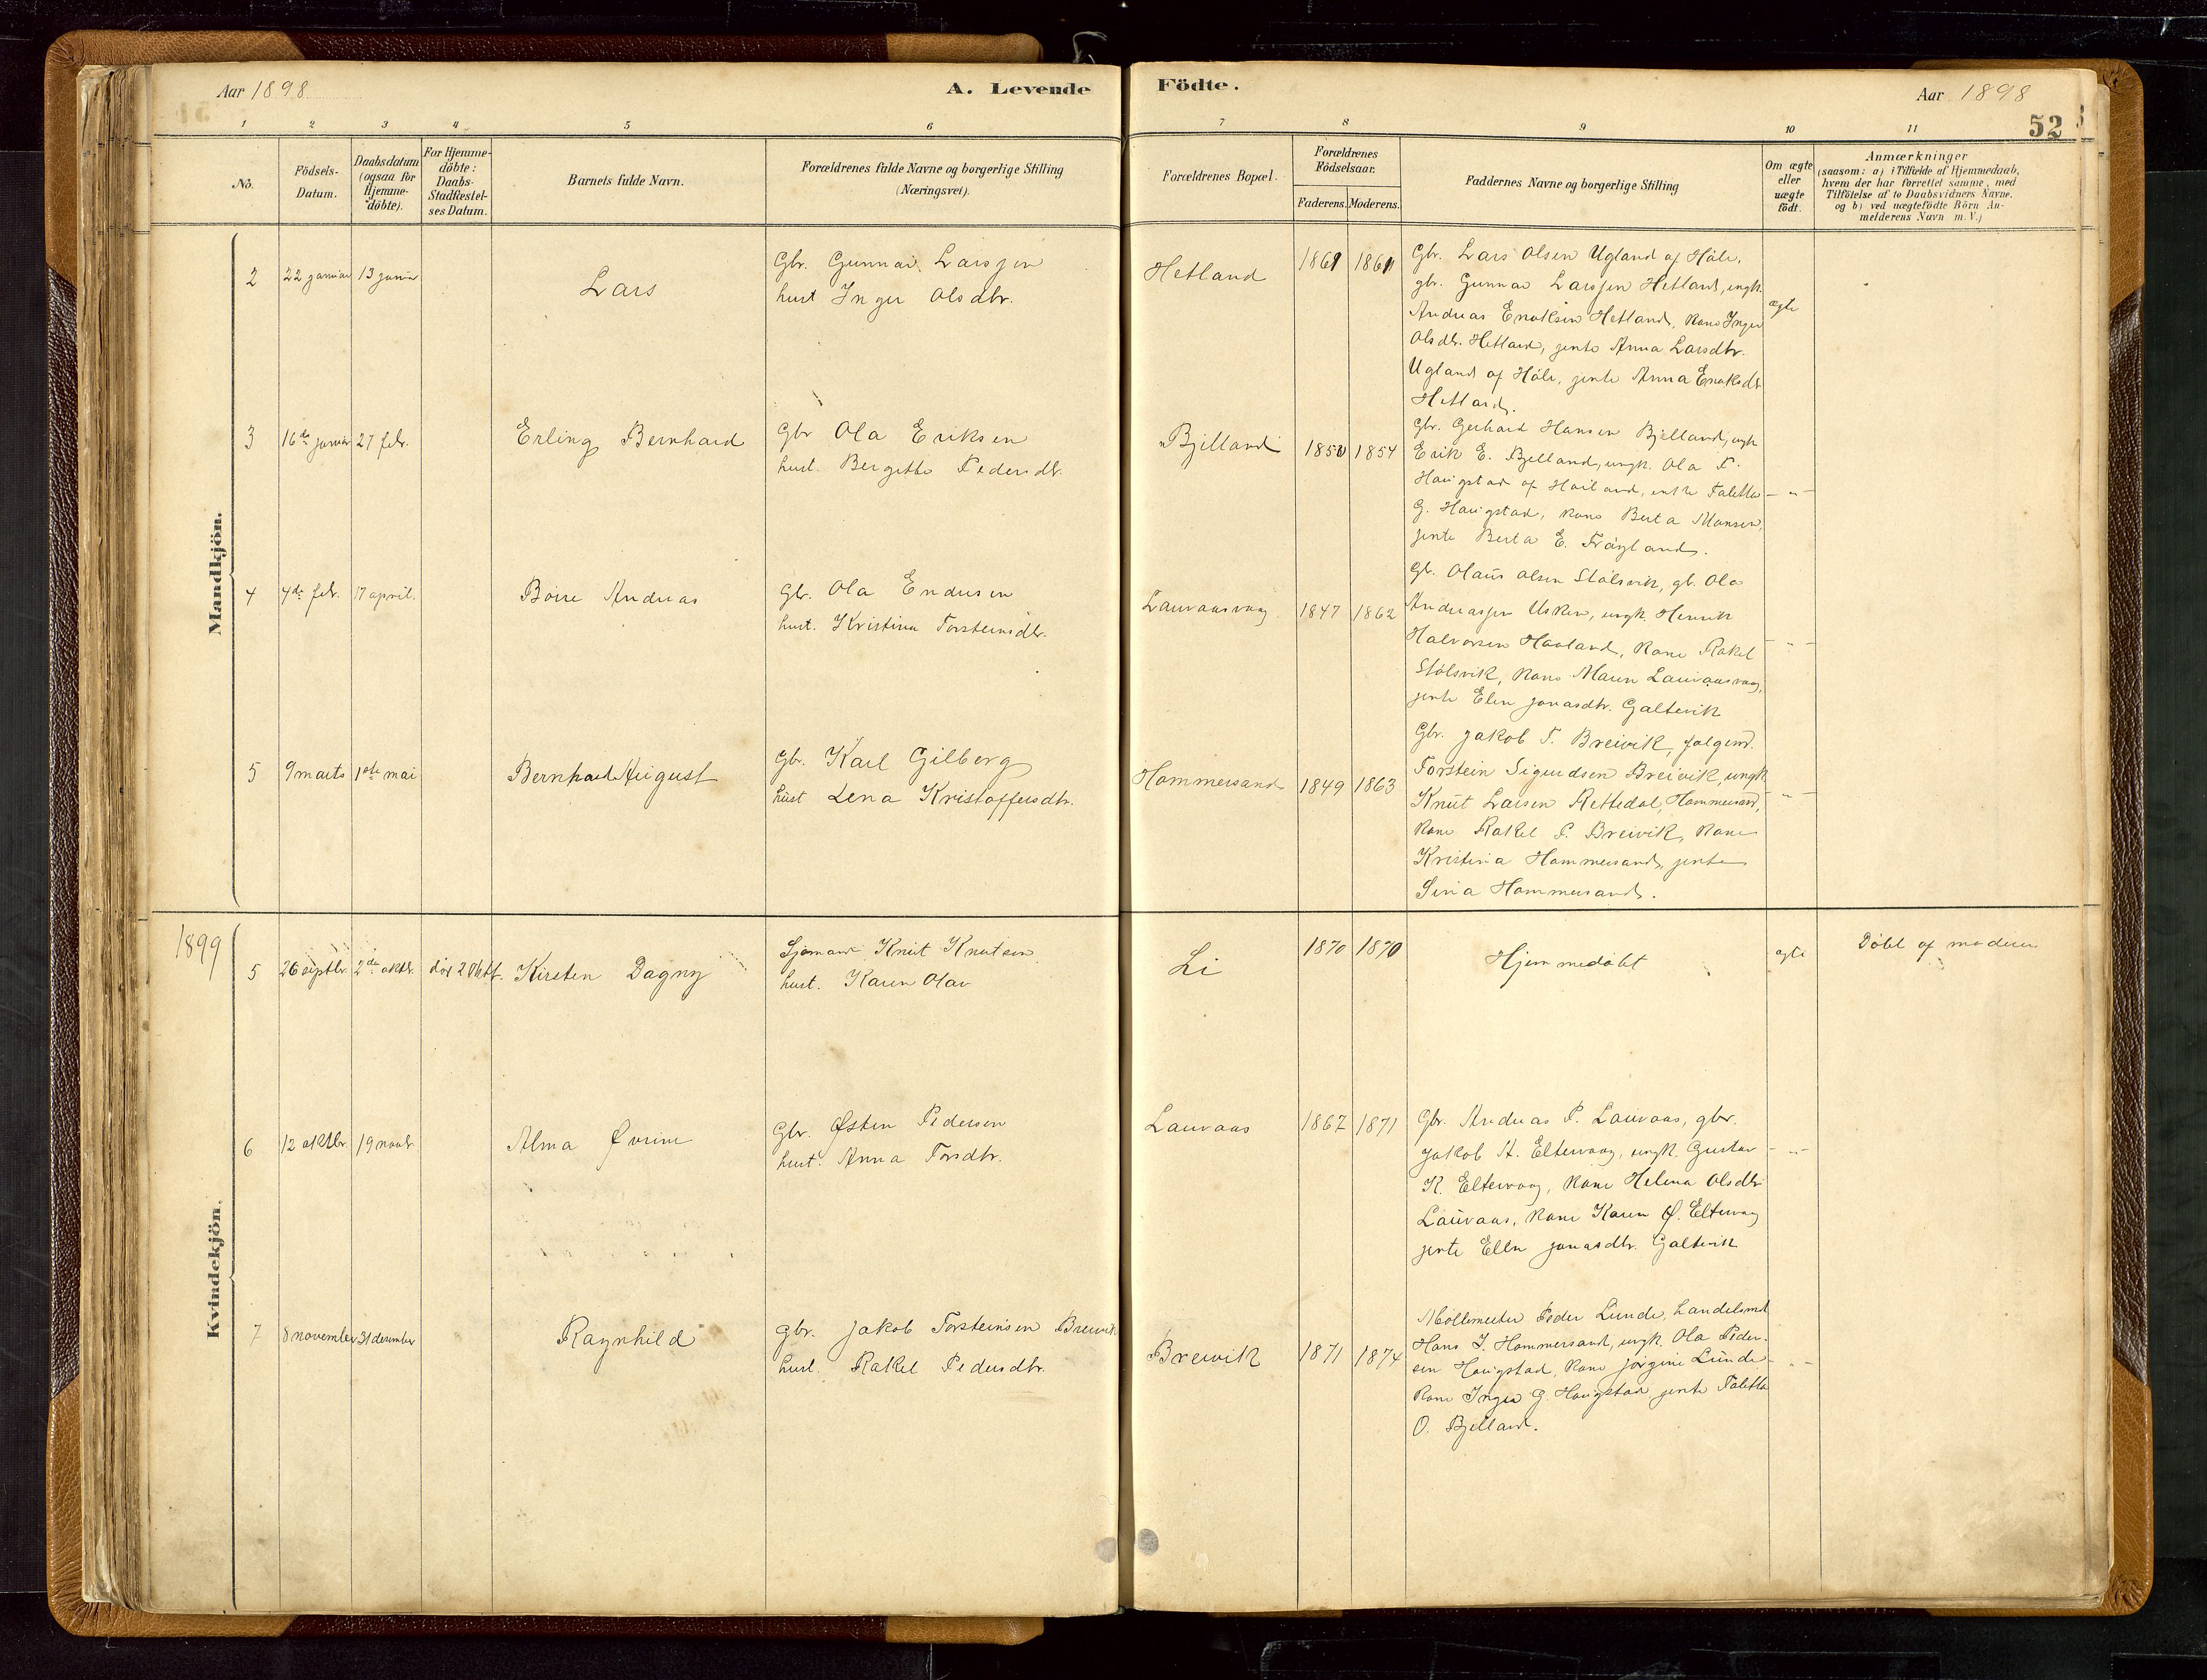 Aar 1898
A. Levende
Födte.
Aar 1898
52
1 2 3 4 5 6 7 8 9 10 11
No.
Födsels-
Datum.
Daabsdatum
(ogsaa for
Hjemme-
döbte).
For Hjemme-
döbte:
Daabs-
Stadfæstel-
ses Datum.
Barnets fulde Navn.
Forældrenes fulde Navne og borgerlige Stilling
(Næringsvei).
Forældrenes Bopæl.
Forældrenes
Födselsaar.
Faderens. Moderens.
Faddernes Navne og borgerlige Stilling
Om ægte
eller
uægte
födt.
Anmærkninger
(saasom: a) i Tilfælde af Hjemmedaab,
hvem der har forrettet samme, med
Tilföielse af to Daabsvidners Navne,
og b) ved uægtefödte Börn An-
melderens Navn m. V.)
Mandkjön.
2 22 januar 13 Lars
Gbr. Gunnar Larssen
hust Inger Olsdtr.
Hetland
Gbr. Lars Olsen Ugland af Håle,
gbr. Gunnar Larssen Hetland, ungk.
Andreas Enoksen Hetland, Kone Inger
Olsdtr. Hetland, jente Anna Larsdtr.
Ugland af Håle, jente Anna Enoksdtr
Hetland.
ægte
3 16de januar 27 febr. Erling Bernhard
Gbr Ola Eriksen
hust. Bergitte Pedersdtr.
Bjelland 1854
Gbr. Gerhard Hansen Bjelland, ungk
Erik E. Bjelland, ungk. Ola P.
Haugstad af Talette
G. Haugstad, Kone Berta Monsen,
jente Berta E. Frøyland.
- " -
4 4de febr. 17 april. Andreas
Gbr. Ola Endresen
hust. Kristina Torsteinsdtr.
Lauvaasvaag 1847 1862
Gbr. Olaus Olsen Stølsvik, gb. Ola
Andreassen Usken, ungk. Henrik
Halvorsen Haaland, Kone Rakel
Stølsvik, Kone Maren Lauvaasvaag,
jente Elen Jonasdtr. Galtevik
- " -
5 9 marts 1ste mai Bernhard August
Gbr. Karl Gilberg
hust Lena Kristoffersdtr.
Hommersand 1849 1863
Gbr. Jakob T. Breivik, folgem.
Torstein Sigurdsen Breivik, ungk
Knut Larsen Rettedal, Hommersand,
Kone Rakel P. Breivik, Kone
Kristina Hommersand, jente
Sina Hommersand.
- " -
1899
Kvindekjön.
5 26 septbr. 2de oktbr. død 2 Oktbr. Kirsten Dagny
Sjømand Knut Knutsen
hust. Karen Olav
Li 1870 1870
Hjemmedøbt
ægte
Døbt af moderen
6 12 oktbr. 19 novbr. Alma
Gbr. Østen Pedersen
hust. Anna Torsdtr.
Lauvaas 1867 1871
Gbr. Andreas P. Lauvaas, gbr.
Jakob A. Eltervaag, ungk. Gustav
K. Eltervaag, Kone Helena Olsdtr
Lauvaas, Kone Karen Ø. Eltervaag
jente Ellen Jonasdtr. Galtevik
- " -
7 8 november 31 desember Ragnhild
gbr. Jakob Torsteinsen Breivik
hust. Rakel Pedersdtr.
Breivik 1871 1874
Møllemester Peder Lunde, Landelsmd
Hans J. Hommersand, ungk. Ola Peder-
sen Haugstad, Kone Jørgine Lunde
Kone Inger G. Haugstad, jente Talette
O. Bjelland.
- " -